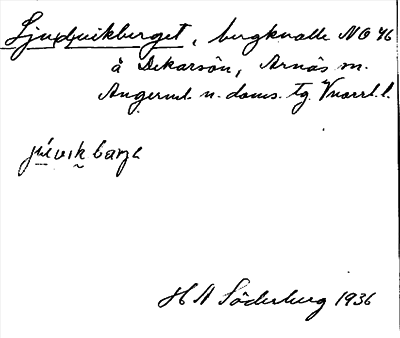 Ljudvikberget, bergknalle NO 46
å Dekarsön, Arnäs sn.
Ångerml. n. doms. tg. Vnorrl. l.
barje
H A Söderberg 1936